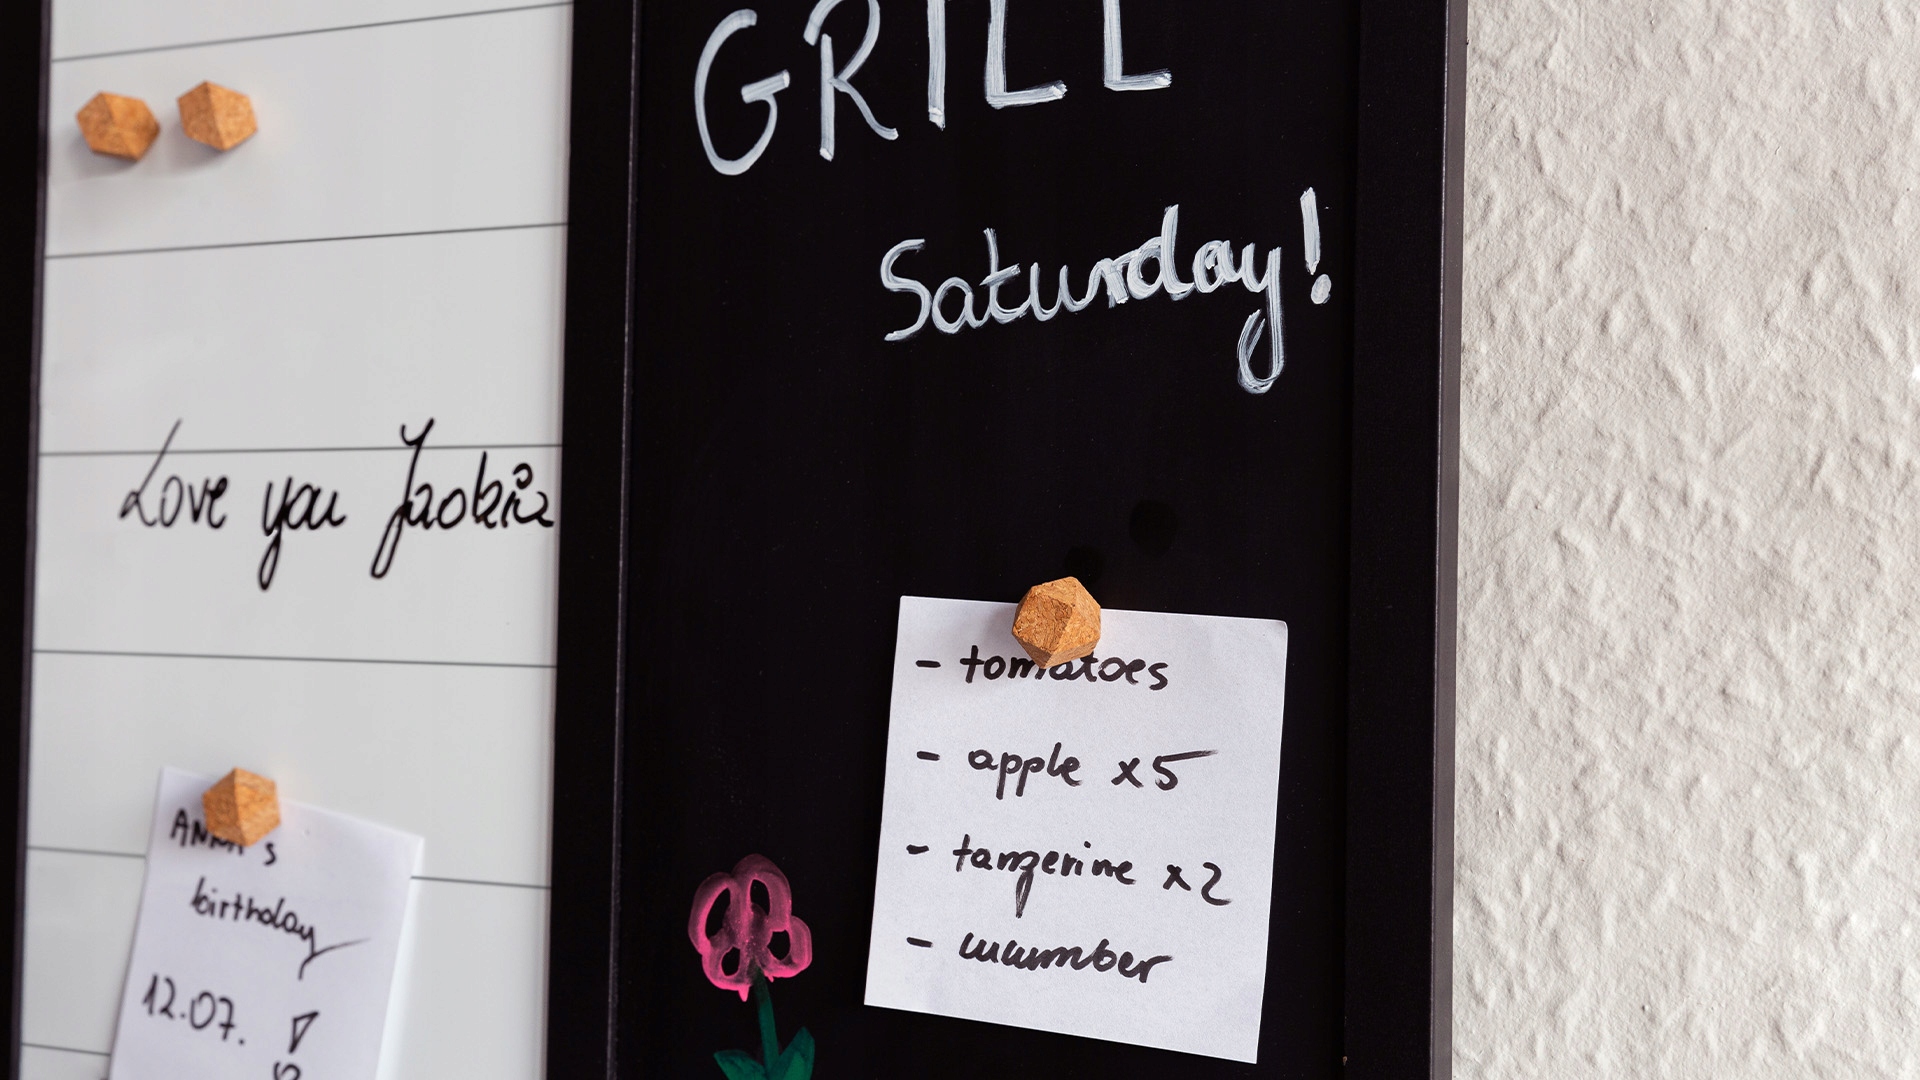 GRILL
Saturday!
Love you
- tomatoes
- apple x5
- tangerine x2
- cucumber
ANNA's
birthday
12.07.